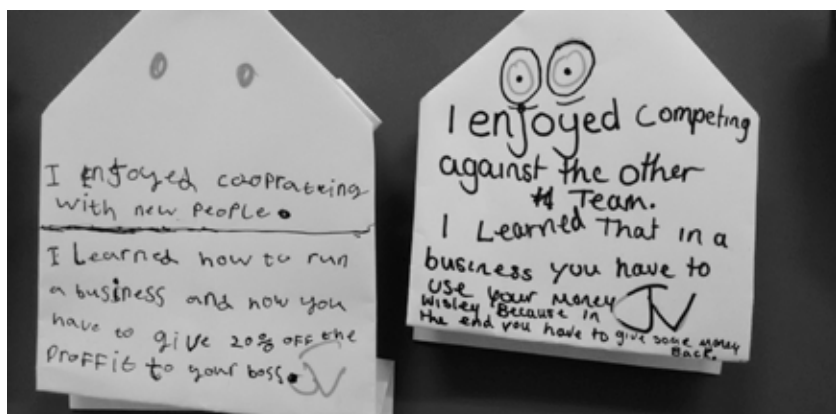 I enjoyed cooprateing
with new people.
I Learned how to run
a business and how you
have to give 20% off the
proffit to your boss.
JV
I enjoyed competing
against the other
Team.
I Learned That in a
business you have to
use your money
wisley Because in
the end you have to give some money
Back.
JV